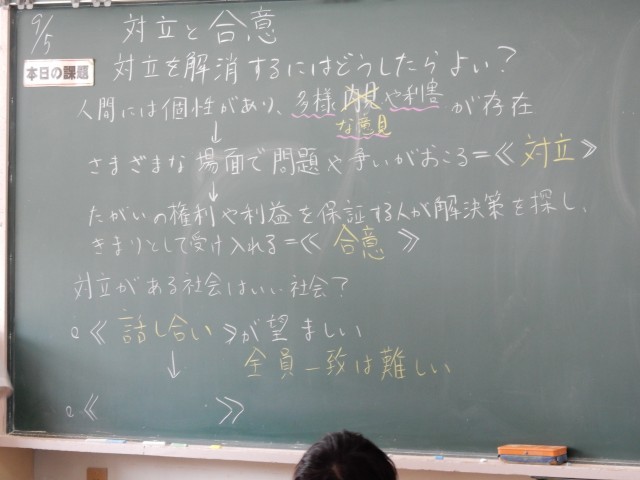 9/5 対立と合意
本日の課題 対立を解消するにはどうしたらよい?
人間には個性があり、多様や利害が存在
な意見
さまざまな場面で問題や争いがおころ=≪対立≫
たがいの権利や利益を保証する人が解決策を探し、
きまりとして受け入れる=≪合意≫
対立がある社会はいい社会?
≪話し合い≫が望ましい
↓ 全員一致は難しい
≪ ≫